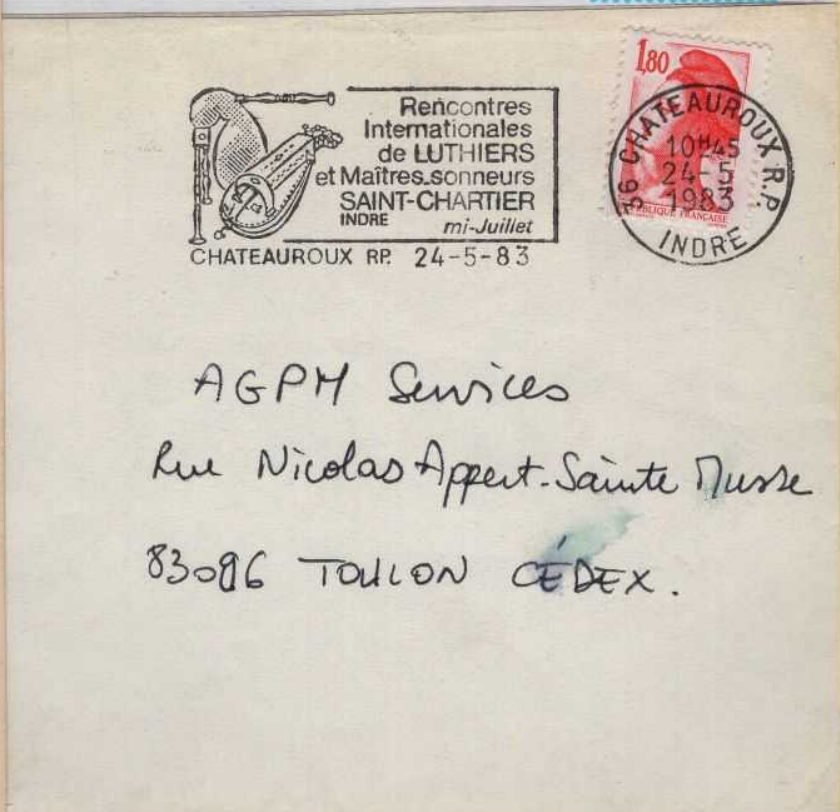 Rencontres
Internationales
de LUTHIERS
et Maîtres-sonneurs
SAINT-CHARTIER
INDRE mi-Juillet
CHATEAUROUX RP. 24-5-83
1,80
36 CHATEAUROUX R.P.
10H45
24-5
1983
INDRE
RÉPUBLIQUE FRANÇAISE
AGPM Services
Rue Nicolas Appert-Sainte Musse
83086 TOULON CÉDEX.